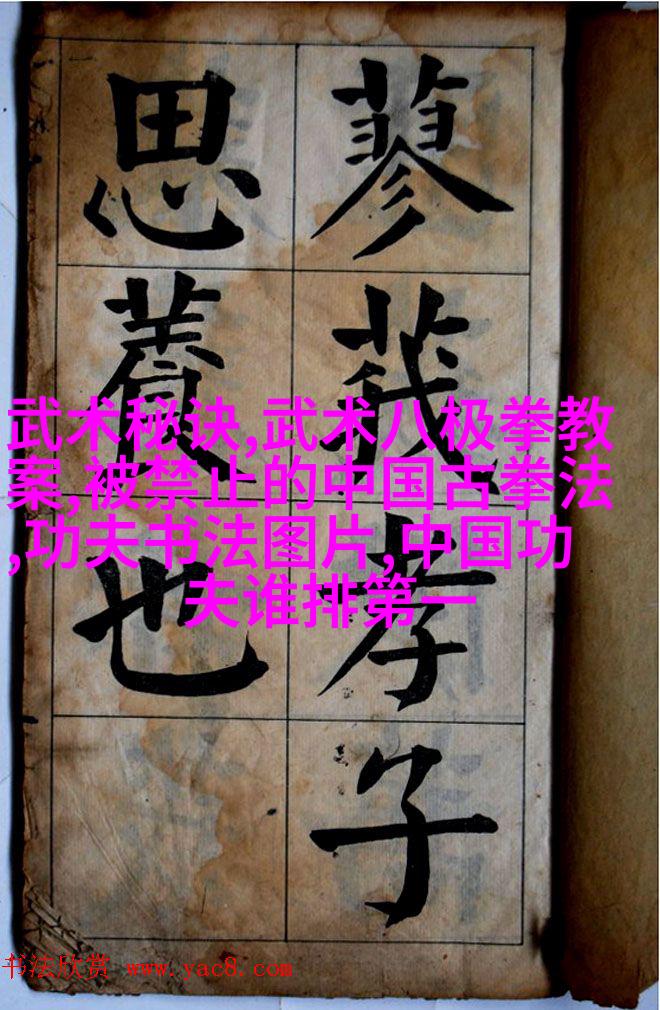 蓼莪孝子
思養也
武术秘诀,武术八极拳教
案,被禁止的中国古拳法
,功夫书法图片,中国功
夫谁排第一
书法欣赏 www.yac8.com